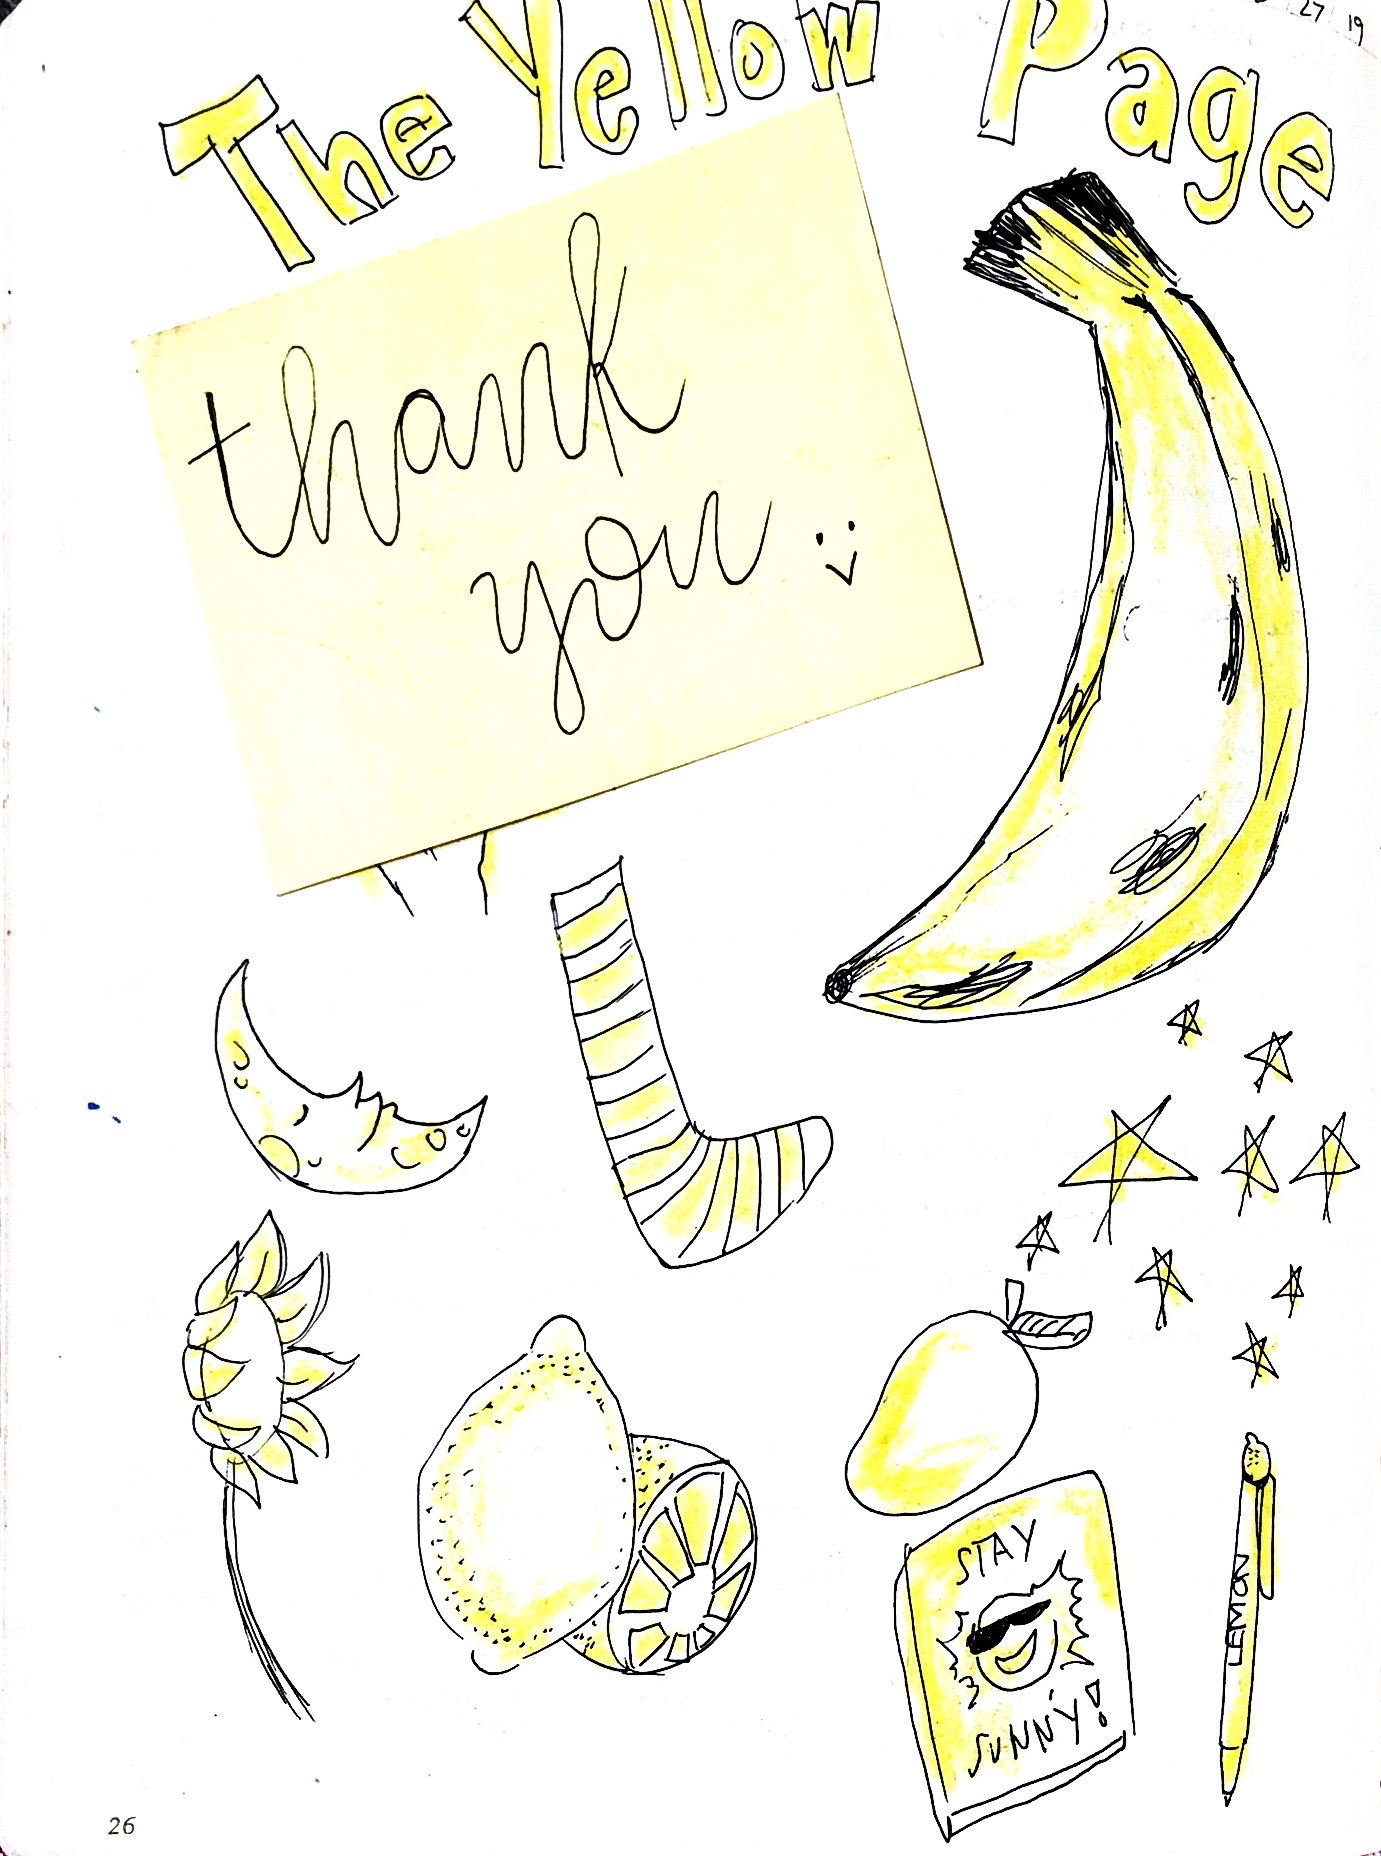 27 19
The Yellow Page
thank
you
STAY
SUNNY!
LEMON
26